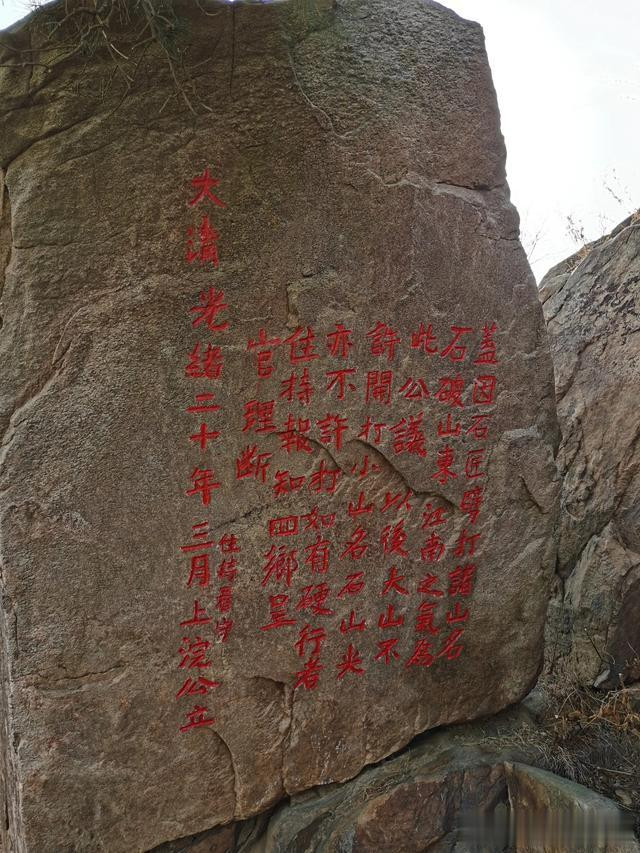 蓋因石匠時打諸山名
石破山東江南之氣為
此公議以後大山不
許開打小山名石山尖
亦不許打如有硬行者
住持報知四鄉呈
官理斷
住持看守
大清光緒二十年三月上浣公立